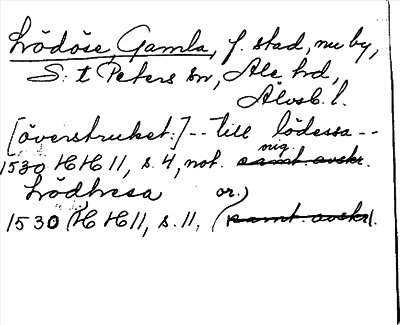 Lödöse, Gamla, f. stad, nu by,
S:t Peters sn, Ale hd,
Älvsb. l.
[överstruket:] -- till lödessa --
1530 HH 11, s. 4, not. samt. avskr. nig.
Lödhesa or.)
1530 (HH 11, s. 11, (samt. avskr.).